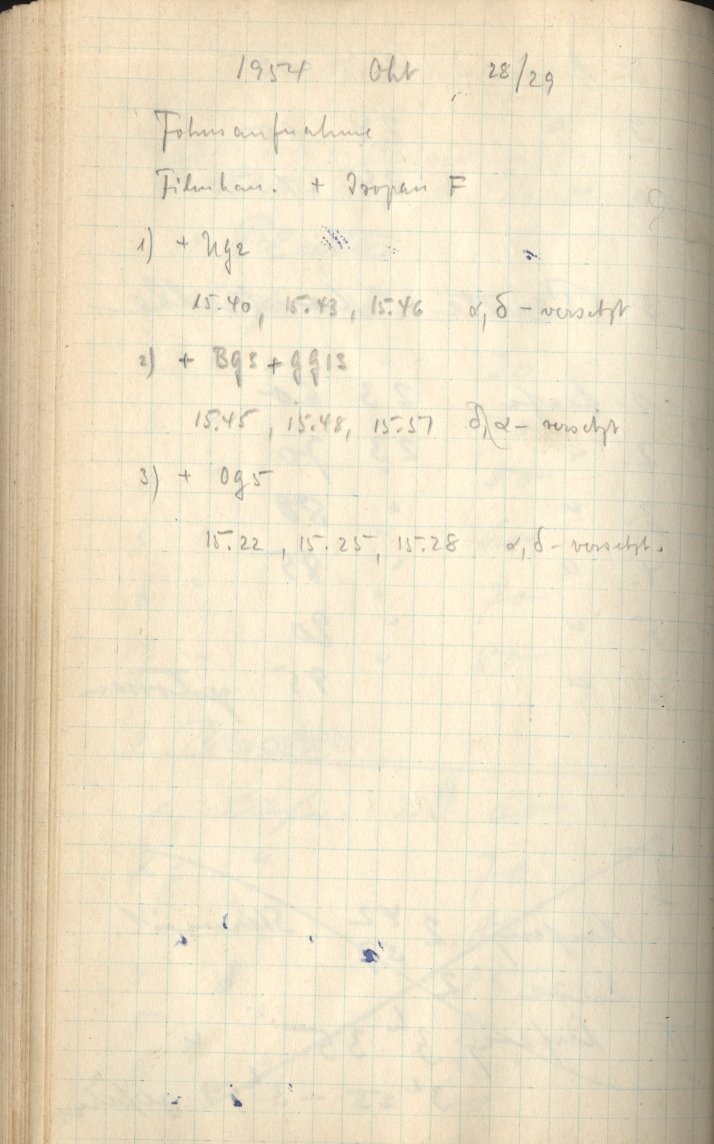 1954 Okt 28/29
Fokusaufnahme
Filmkam. + Isopan F
1) + Ug2
15.40, 15.43, 15.46 α, δ - versetzt
2) + Bg3 + gg13
15.45, 15.48, 15.51 δ, α - versetzt
3) + Og5
15.22, 15.25, 15.28 α, δ - versetzt.